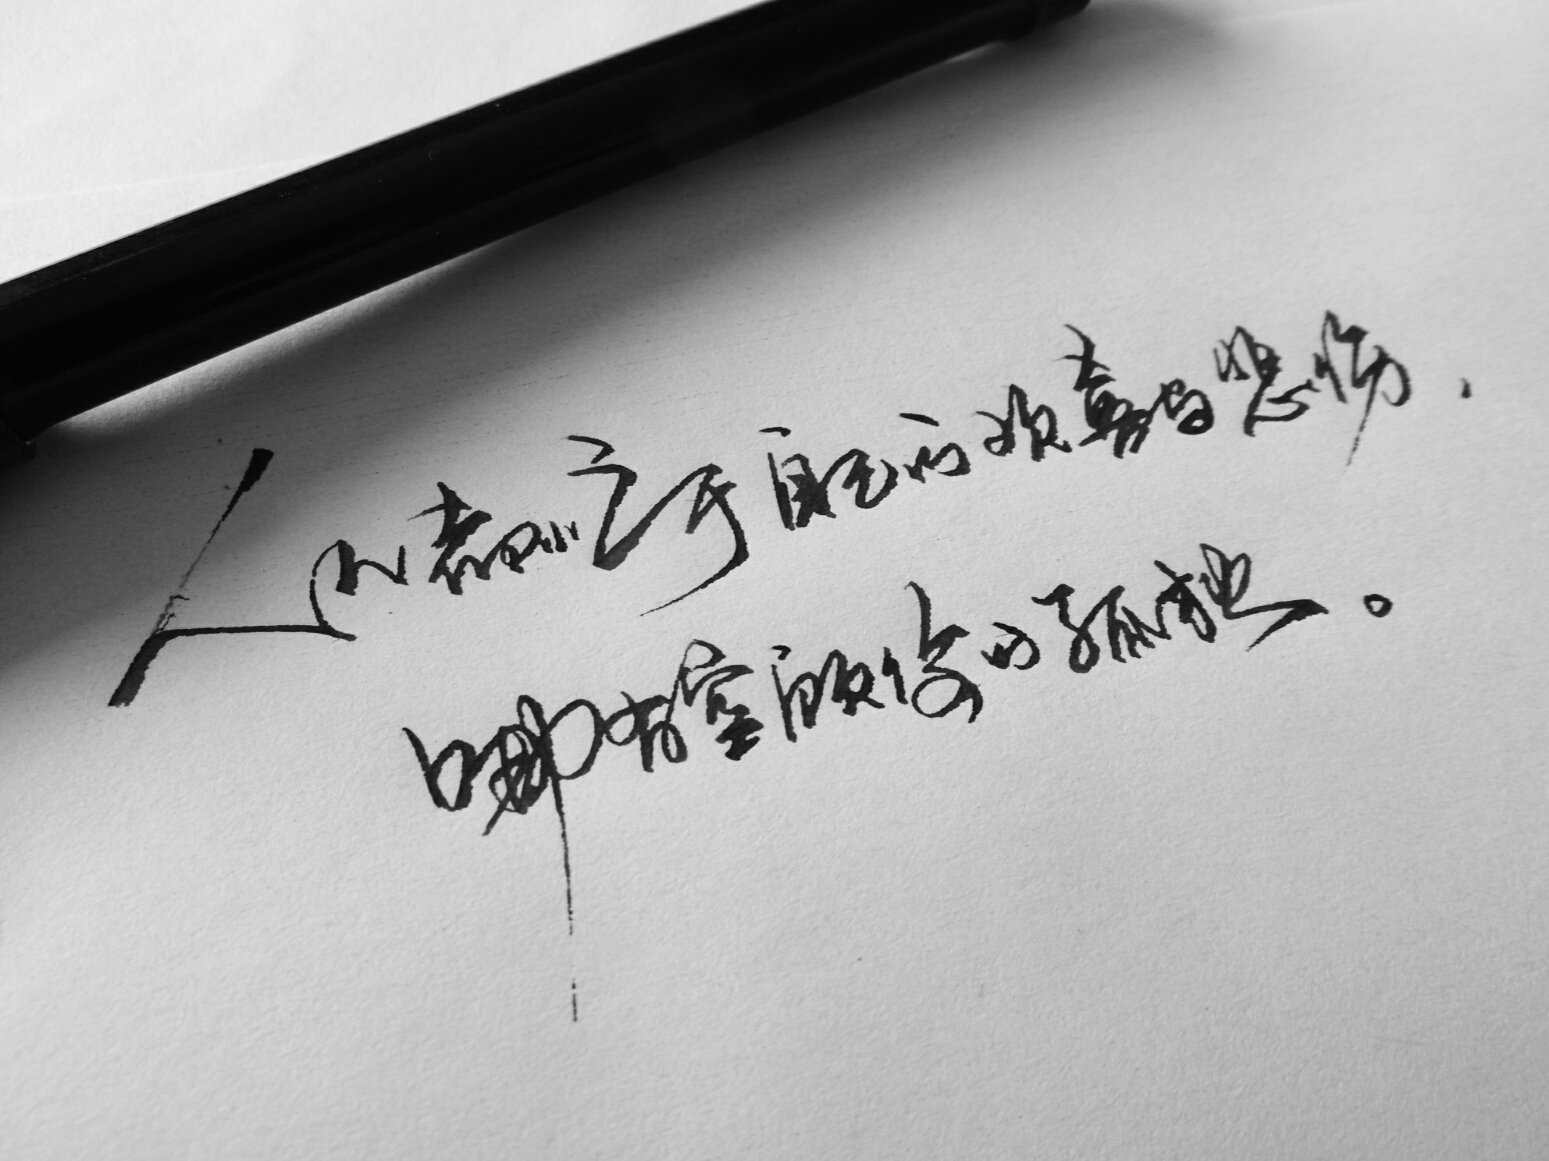 人以群……于自己的欢喜与悲伤，
哪有空顾你的孤独。